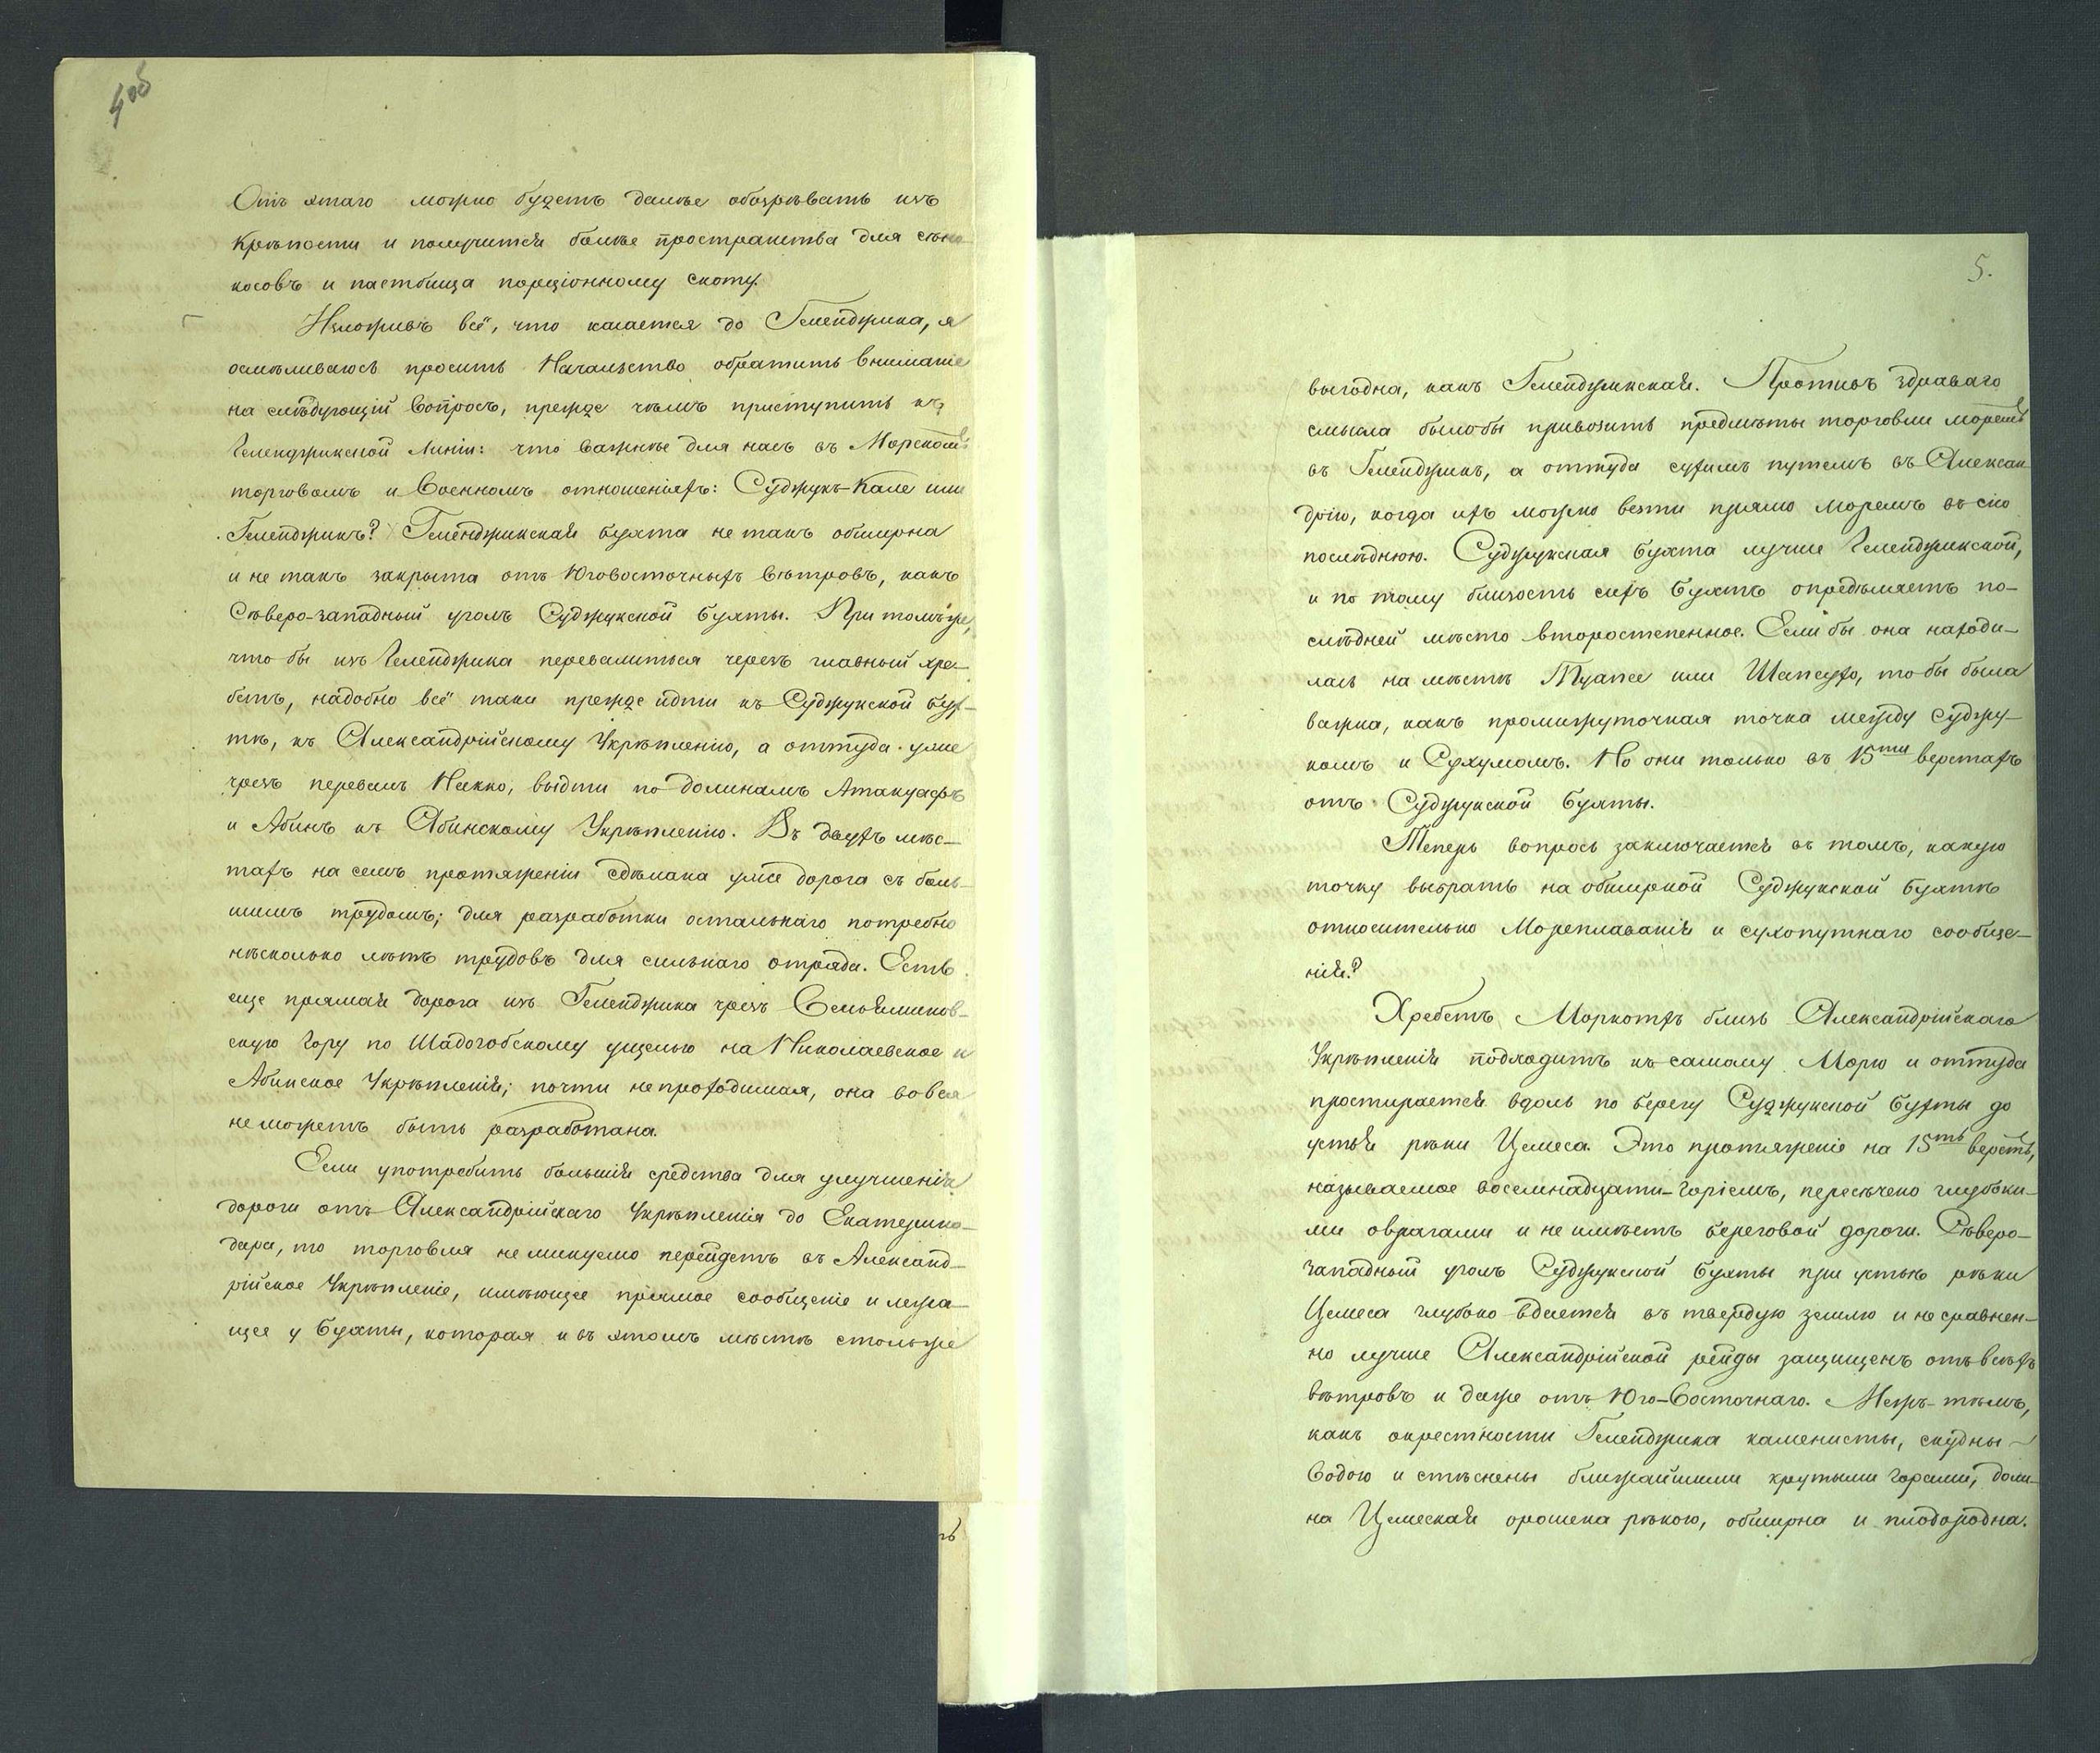 4об
Отъ этаго можно будетъ далѣе обозрѣвать изъ
крѣпости и получится болѣе пространства для сѣно-
косовъ и пастбища порціонному скоту.
Изложивъ всё, что касается до Геленджика, я
осмѣливаюсь просить Начальство обратить вниманіе
на слѣдующій вопросъ, прежде чѣмъ приступить къ
Геленджикской Линіи: что важнѣе для насъ въ Морскомъ
торговомъ и Военномъ отношеніяхъ: Суджукъ-Кале или
Геленджикъ? Геленджикская бухта не такъ обширна
и не такъ закрыта отъ Юговосточныхъ вѣтровъ, какъ
Сѣверо-западный уголъ Суджукской бухты. При томъ же,
что бы изъ Геленджика перевалиться черезъ главный хре-
бетъ, надобно всё таки прежде идти къ Суджукской бух-
тѣ, къ Александрійскому Укрѣпленію, а оттуда уже
чрезъ перевалъ Нако, выдти по долинамъ Атакуафъ
и Абинъ къ Абинскому Укрѣпленію. Въ двухъ мѣс-
тахъ на семъ протяженіи сдѣлана уже дорога съ боль-
шимъ трудомъ; для разработки остальнаго потребно
нѣсколько лѣтъ трудовъ для сильнаго отряда. Есть
еще прямая дорога изъ Геленджика чрезъ
скую Гору по Шадогобскому ущелью на Николаевское и
Абинское Укрѣпленія; почти непроходимая, она вовсе
не можетъ быть разработана.
Если употребить большія средства для улучшенія
дороги отъ Александрійскаго Укрѣпленія до Екатерино-
дара, то торговля неминуемо перейдетъ въ Александ-
рійское Укрѣпленіе, имѣющее прямое сообщеніе и лежа-
щее у бухты, которая и въ этомъ мѣстѣ столь же
5.
выгодна, какъ Геленджикская. Противъ здраваго
смысла было бы привозить предмѣты торговли моремъ
въ Геленджикъ, а оттуда сухимъ путемъ въ Алексан
дрію, когда ихъ можно везти прямо моремъ въ сію
послѣднюю. Суджукская бухта лучше Геленджикской,
и по тому близость сихъ бухтъ опредѣляетъ по-
слѣдней мѣсто второстепенное. Если бы она находи-
лась на мѣстѣ Туапсе или Шапсухо, то бы была
важна, какъ промижуточная точка между Суджу-
комъ и Сухумомъ. Но они только въ 15ти верстахъ
отъ Суджукской бухты.
Теперь вопросъ заключается въ томъ, какую
точку выбрать на обширной Суджукской бухтѣ
относительно Мореплаванія и сухопутнаго сообще-
нія?
Хребетъ Маркотхъ близь Александрійскаго
Укрѣпленія подходитъ къ самому Морю и оттуда
простирается вдоль по берегу Суджукской бухты до
устья рѣки Цемеса. Это протяженіе на 15ть верстъ,
называемое восемнадцати-горіемъ, пересѣчено глубоки-
ми оврагами и не имѣетъ береговой дороги. Сѣверо-
западный уголъ Суджукской бухты при устьѣ рѣки
Цемеса глубоко вдается въ твердую землю и не сравнен-
но лучше Александрійской рейды защищенъ отъ всѣхъ
вѣтровъ и даже отъ Юго-Восточнаго. Межъ-тѣмъ,
какъ окрестности Геленджика каменисты, скудны
Водою и стѣснены ближайшими крутыми горами, доли-
на Цемеская орошена рѣкою, обширна и плодородна.